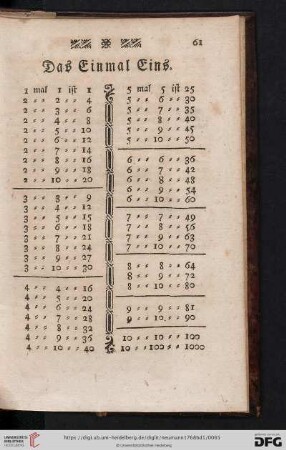 61
Das Einmal Eins.
1 mal 1 ist 1
2 " " 2 " " 4
2 " " 3 " " 6
2 " " 4 " " 8
2 " " 5 " " 10
2 " " 6 " " 12
2 " " 7 " " 14
2 " " 8 " " 16
2 " " 9 " " 18
2 " " 10 " " 20
3 " " 3 " " 9
3 " " 4 " " 12
3 " " 5 " " 15
3 " " 6 " " 18
3 " " 7 " " 21
3 " " 8 " " 24
3 " " 9 " " 27
3 " " 10 " " 30
4 " " 4 " " 16
4 " " 5 " " 20
4 " " 6 " " 24
4 " " 7 " " 28
4 " " 8 " " 32
4 " " 9 " " 36
4 " " 10 " " 40
5 mal 5 ist 25
5 " " 6 " " 30
5 " " 7 " " 35
5 " " 8 " " 40
5 " " 9 " " 45
5 " " 10 " " 50
6 " " 6 " " 36
6 " " 7 " " 42
6 " " 8 " " 48
6 " " 9 " " 54
6 " " 10 " " 60
7 " " 7 " " 49
7 " " 8 " " 56
7 " " 9 " " 63
7 " " 10 " " 70
8 " " 8 " " 64
8 " " 9 " " 72
8 " " 10 " " 80
9 " " 9 " " 81
9 " " 10 " " 90
10 " " 10 " " 100
10 " " 100 " " 1000
UNIVERSITÄTS-
BIBLIOTHEK
HEIDELBERG
© Universitätsbibliothek Heidelberg
DFG